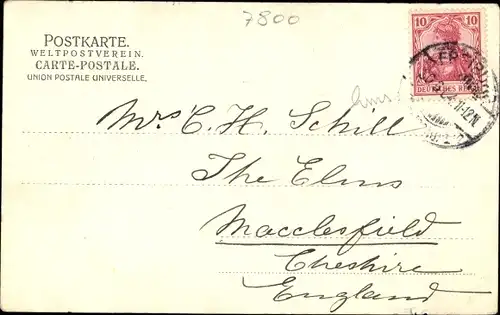 7800
POSTKARTE.
WELTPOSTVEREIN.
CARTE-POSTALE.
UNION POSTALE UNIVERSELLE.
10 10
DEUTSCHES REICH
11-12 N
Mrs C. H. Schill
The Elms
Macclesfield
Cheshire
England